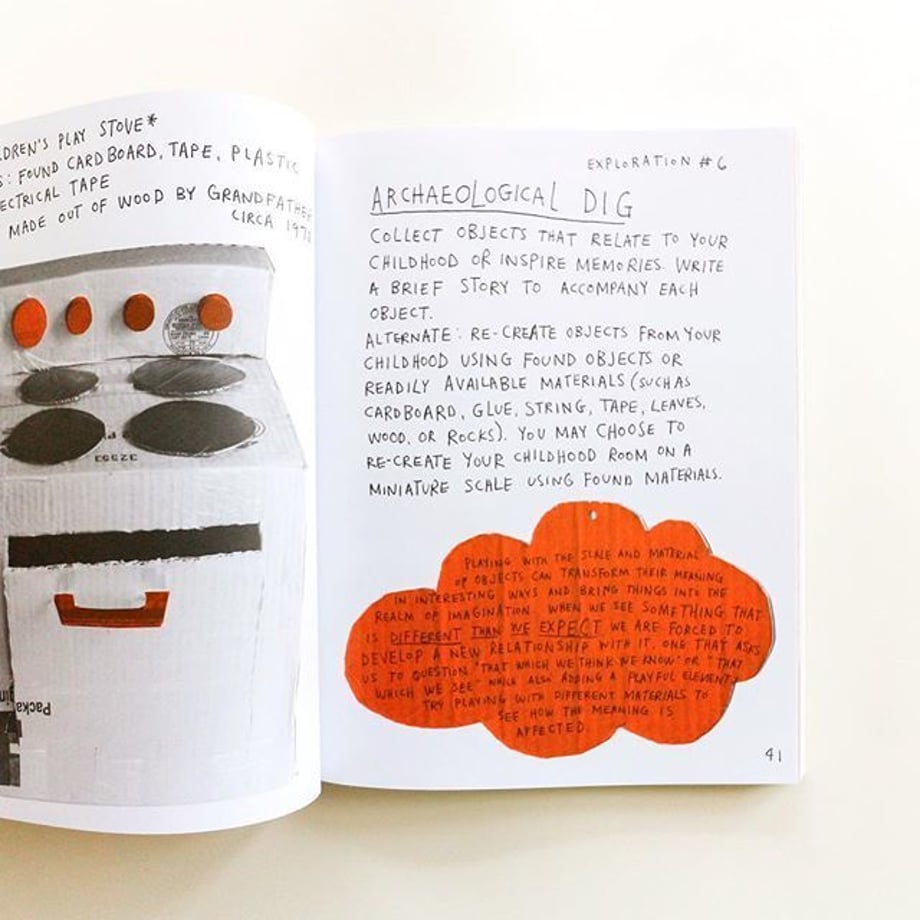 LDREN'S PLAY STOVE*
S: FOUND CARDBOARD, TAPE, PLASTIC
ECTRICAL TAPE
MADE OUT OF WOOD BY GRANDFATHER
CIRCA 197
32553
Packa
EXPLORATION #6
ARCHAEOLOGICAL DIG
COLLECT OBJECTS THAT RELATE TO YOUR
CHILDHOOD OR INSPIRE MEMORIES. WRITE
A BRIEF STORY TO ACCOMPANY EACH
OBJECT.
ALTERNATE: RE-CREATE OBJECTS FROM YOUR
CHILDHOOD USING FOUND OBJECTS OR
READILY AVAILABLE MATERIALS (SUCH AS
CARDBOARD, GLUE, STRING, TAPE, LEAVES,
WOOD, OR ROCKS). YOU MAY CHOOSE TO
RE-CREATE YOUR CHILDHOOD ROOM ON A
MINIATURE SCALE USING FOUND MATERIALS.
PLAYING WITH THE SCALE AND MATERIAL
OF OBJECTS CAN TRANSFORM THEIR MEANING
IN INTERESTING WAYS AND BRING THINGS INTO THE
REALM OF IMAGINATION. WHEN WE SEE SOMETHING THAT
IS DIFFERENT THAN WE EXPECT WE ARE FORCED TO
DEVELOP A NEW RELATIONSHIP WITH IT, ONE THAT ASKS
US TO QUESTION "THAT WHICH WE THINK WE KNOW" OR "THAT
WHICH WE SEE" WHILE ALSO ADDING A PLAYFUL ELEMENT.
TRY PLAYING WITH DIFFERENT MATERIALS TO
SEE HOW THE MEANING IS
AFFECTED.
41